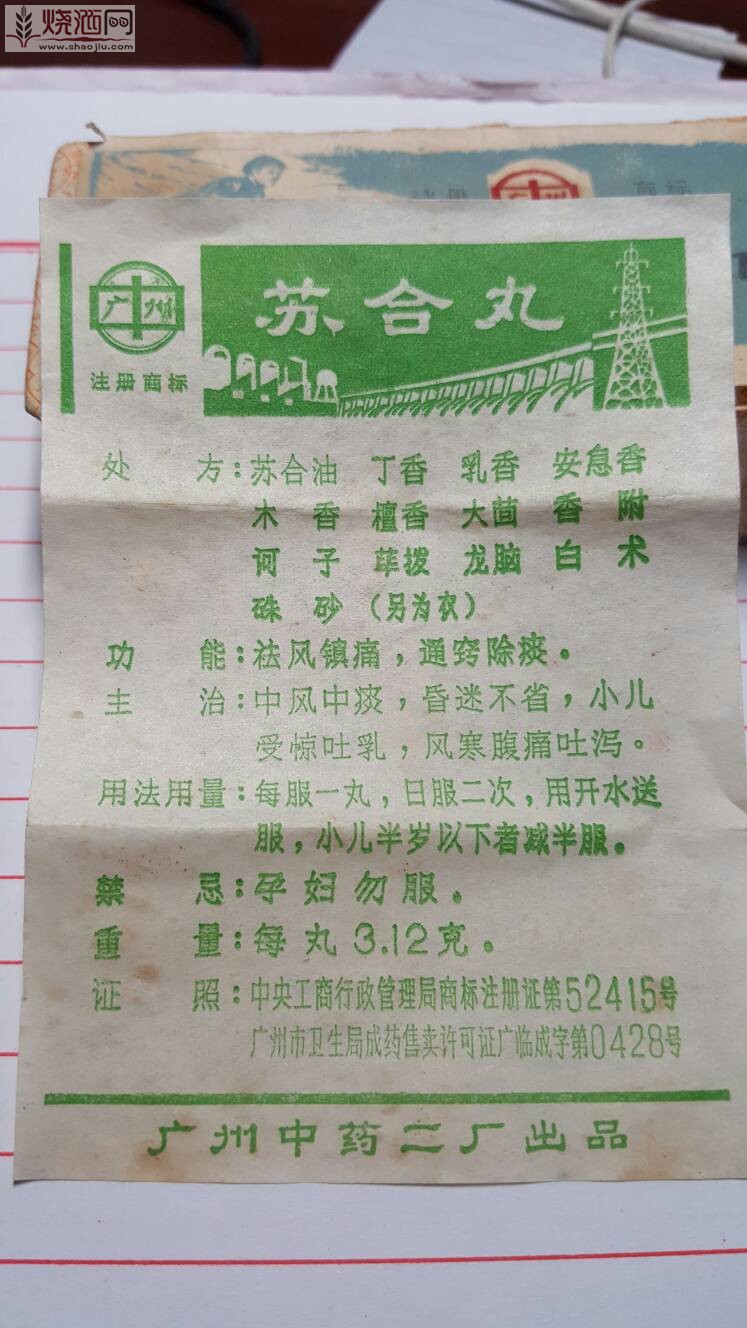 烧酒网
www.shaojiu.com
广州
注册商标
苏合丸
处方：苏合油 丁香 乳香 安息香
木香 檀香 大茴 香附
诃子 荜拨 龙脑 白术
硃砂（另为衣）
功能：祛风镇痛，通窍除痰。
主治：中风中痰，昏迷不省，小儿
受惊吐乳，风寒腹痛吐泻。
用法用量：每服一丸，日服二次，用开水送
服，小儿半岁以下者减半服。
禁忌：孕妇勿服。
重量：每丸3.12克。
证照：中央工商行政管理局商标注册证第52415号
广州市卫生局成药售卖许可证广临成字第0428号
广州中药二厂出品